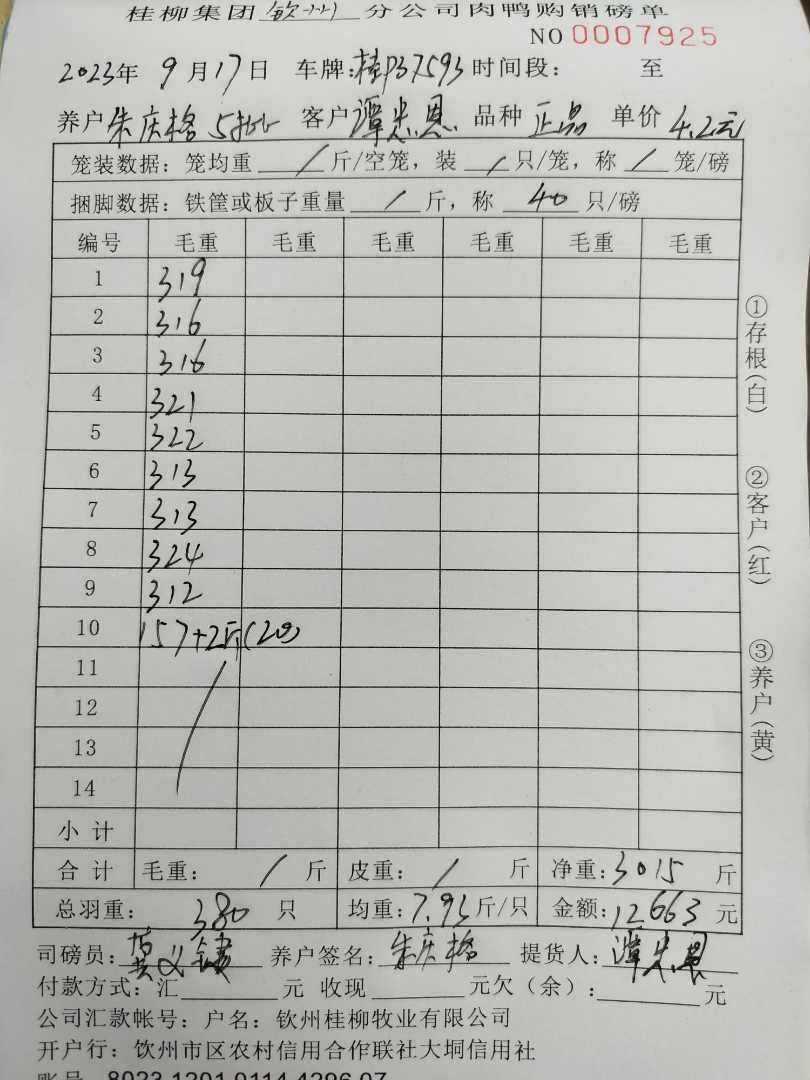 桂柳集团钦州分公司肉鸭购销磅单
NO 0007925
2023年 9月17日 车牌:桂P37593 时间段: 至
养户朱庆格 5批 客户谭忠恩 品种 正品 单价 4.2元
笼装数据: 笼均重 / 斤/空笼, 装 / 只/笼, 称 / 笼/磅
捆脚数据: 铁筐或板子重量 / 斤, 称 40 只/磅
编号 毛重 毛重 毛重 毛重 毛重 毛重
1 319
2 316
3 316
4 321
5 322
6 313
7 313
8 324
9 312
10 157+2斤(20)
11
12
13
14
小计
合计 毛重: / 斤 皮重: / 斤 净重:3015 斤
总羽重: 380 只 均重:7.93斤/只 金额:12663 元
司磅员: 养户签名: 朱庆格 提货人: 谭忠恩
付款方式: 汇 元 收现 元欠(余): 元
公司汇款帐号: 户名: 钦州桂柳牧业有限公司
开户行: 钦州市区农村信用合作联社大垌信用社
账号 8023 1201 0114 4296 07
①存根(白)
②客户(红)
③养户(黄)